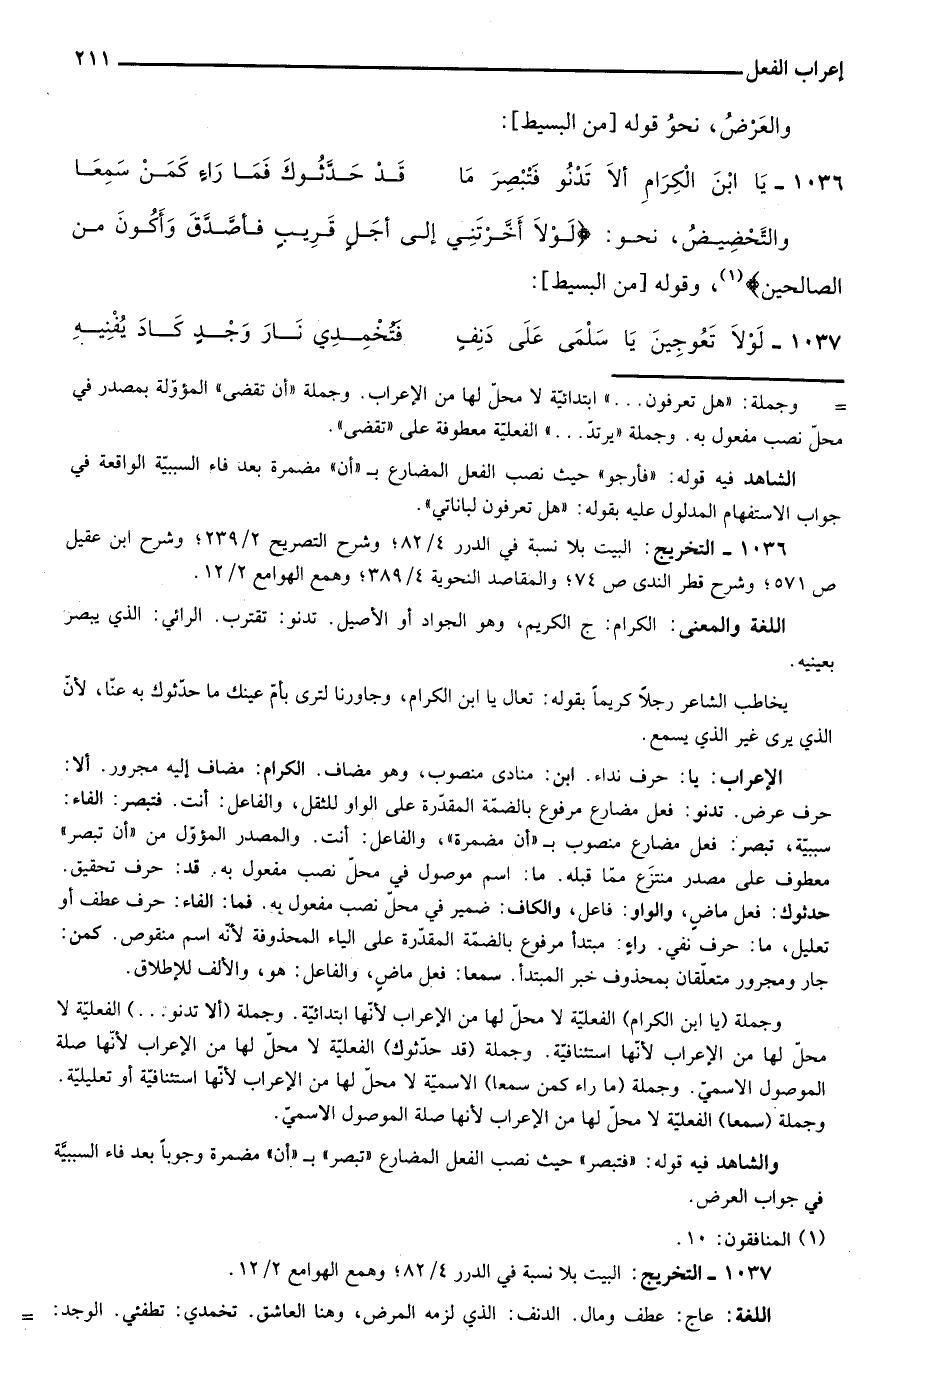 إعراب الفعل ٢١١
والعَرْضُ، نحوُ قوله [من البسيط]:
١٠٣٦ ـ يَا ابْنَ الْكِرَامِ ألاَ تَدْنُو فَتُبْصِرَ مَا قَدْ حَدَّثُوكَ فَمَا رَاءٍ كَمَنْ سَمِعَا
والتَّحْضِيضُ، نحو: ﴿لَوْلاَ أَخَّرْتَنِي إلى أجَلٍ قَرِيبٍ فأصَّدَّقَ وَأَكُونَ من
الصالحين﴾(١)، وقوله [من البسيط]:
١٠٣٧ ـ لَوْلاَ تَعُوجِينَ يَا سَلْمَى عَلَى دَنِفٍ فَتُخْمِدِي نَارَ وَجْدٍ كَادَ يُفْنِيهِ
= وجملة: «هل تعرفون...» ابتدائيّة لا محلّ لها من الإعراب. وجملة «أن تقضى» المؤوّلة بمصدر في
محلّ نصب مفعول به. وجملة «يرتدّ...» الفعليّة معطوفة على «تقضى».
الشاهد فيه قوله: «فأرجو» حيث نصب الفعل المضارع بـ «أن» مضمرة بعد فاء السببيّة الواقعة في
جواب الاستفهام المدلول عليه بقوله: «هل تعرفون لباناتي».
١٠٣٦ ـ التخريج: البيت بلا نسبة في الدرر ٨٢/٤؛ وشرح التصريح ٢٣٩/٢؛ وشرح ابن عقيل
ص ٥٧١؛ وشرح قطر الندى ص ٧٤؛ والمقاصد النحوية ٣٨٩/٤؛ وهمع الهوامع ١٢/٢.
اللغة والمعنى: الكرام: ج الكريم، وهو الجواد أو الأصيل. تدنو: تقترب. الرائي: الذي يبصر
بعينيه.
يخاطب الشاعر رجلاً كريماً بقوله: تعال يا ابن الكرام، وجاورنا لترى بأمّ عينك ما حدّثوك به عنّا، لأنّ
الذي يرى غير الذي يسمع.
الإعراب: يا: حرف نداء. ابن: منادى منصوب، وهو مضاف. الكرام: مضاف إليه مجرور. ألا:
حرف عرض. تدنو: فعل مضارع مرفوع بالضمّة المقدّرة على الواو للثقل، والفاعل: أنت. فتبصر: الفاء:
سببيّة، تبصر: فعل مضارع منصوب بـ «أن مضمرة»، والفاعل: أنت. والمصدر المؤوّل من «أن تبصر»
معطوف على مصدر منتزَع ممّا قبله. ما: اسم موصول في محلّ نصب مفعول به. قد: حرف تحقيق.
حدثوك: فعل ماضٍ، والواو: فاعل، والكاف: ضمير في محلّ نصب مفعول به. فما: الفاء: حرف عطف أو
تعليل، ما: حرف نفي. راءٍ: مبتدأ مرفوع بالضمّة المقدّرة على الياء المحذوفة لأنّه اسم منقوص. كمن:
جار ومجرور متعلّقان بمحذوف خبر المبتدأ. سمعا: فعل ماضٍ، والفاعل: هو، والألف للإطلاق.
وجملة (يا ابن الكرام) الفعليّة لا محلّ لها من الإعراب لأنّها ابتدائيّة. وجملة (ألا تدنو...) الفعليّة لا
محلّ لها من الإعراب لأنّها استئنافيّة. وجملة (قد حدّثوك) الفعليّة لا محلّ لها من الإعراب لأنّها صلة
الموصول الاسميّ. وجملة (ما راء كمن سمعا) الاسميّة لا محلّ لها من الإعراب لأنّها استئنافيّة أو تعليليّة.
وجملة (سمعا) الفعليّة لا محلّ لها من الإعراب لأنها صلة الموصول الاسميّ.
والشاهد فيه قوله: «فتبصر» حيث نصب الفعل المضارع «تبصر» بـ «أن» مضمرة وجوباً بعد فاء السببيَّة
في جواب العرض.
(١) المنافقون: ١٠.
١٠٣٧ ـ التخريج: البيت بلا نسبة في الدرر ٨٢/٤؛ وهمع الهوامع ١٢/٢.
اللغة: عاج: عطف ومال. الدنف: الذي لزمه المرض، وهنا العاشق. تخمدي: تطفئي. الوجد: =